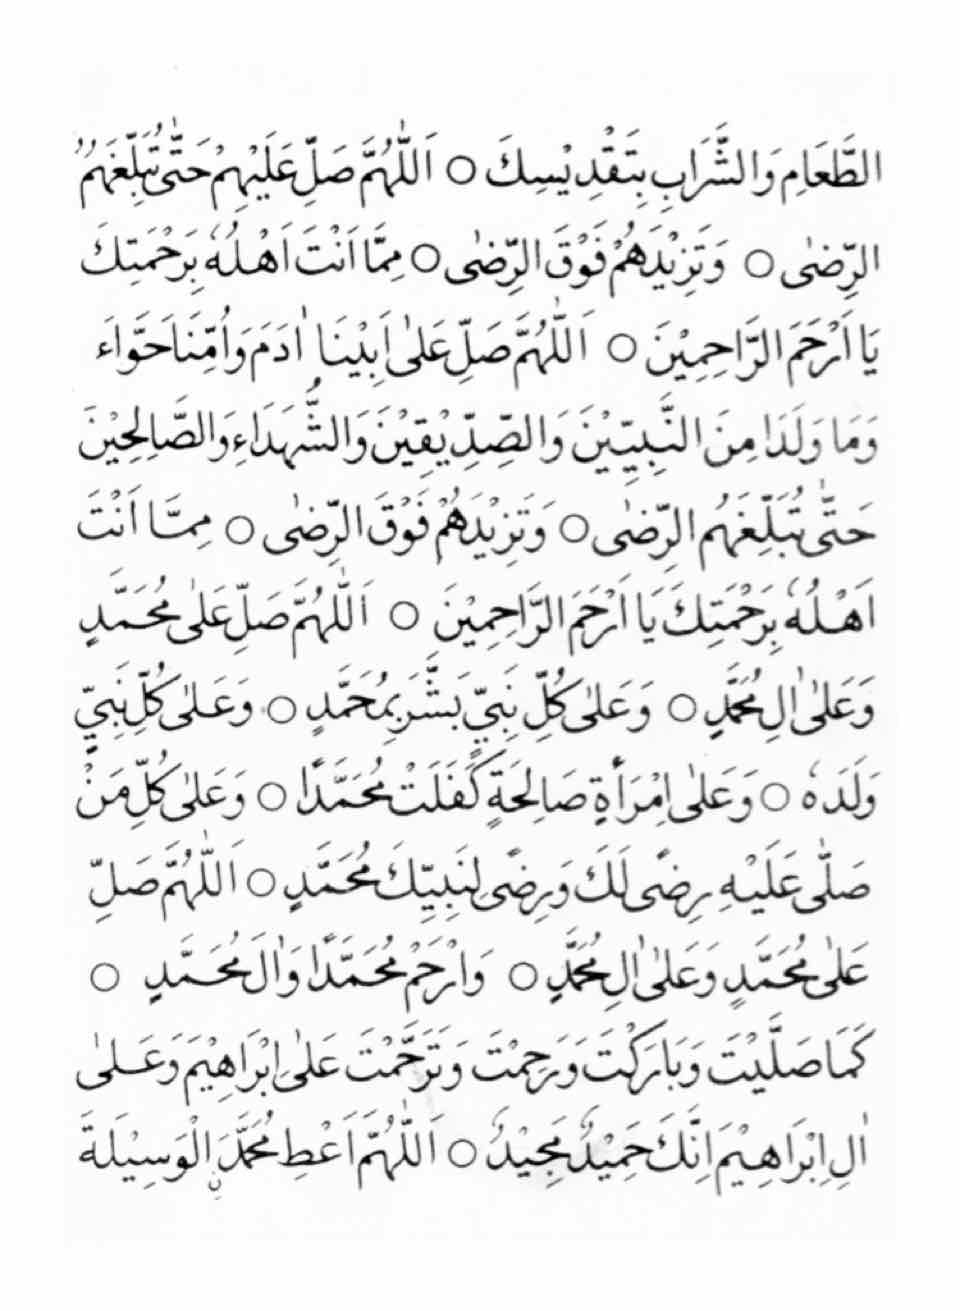 الطَّعَامِ وَالشَّرَابِ بِتَقْدِيْسِكَ ○ اَللّٰهُمَّ صَلِّ عَلَيْهِمْ حَتّٰى تُبَلِّغَهُمُ
الرِّضٰى ○ وَتَزِيْدَهُمْ فَوْقَ الرِّضٰى ○ مِمَّا اَنْتَ اَهْلُهٗ بِرَحْمَتِكَ
يَا اَرْحَمَ الرَّاحِمِيْنَ ○ اَللّٰهُمَّ صَلِّ عَلٰى اَبِيْنَا اٰدَمَ وَاُمِّنَا حَوَّاءَ
وَمَا وَلَدَا مِنَ النَّبِيِّيْنَ وَالصِّدِّيْقِيْنَ وَالشُّهَدَاءِ وَالصَّالِحِيْنَ
حَتّٰى تُبَلِّغَهُمُ الرِّضٰى ○ وَتَزِيْدَهُمْ فَوْقَ الرِّضٰى ○ مِمَّا اَنْتَ
اَهْلُهٗ بِرَحْمَتِكَ يَا اَرْحَمَ الرَّاحِمِيْنَ ○ اَللّٰهُمَّ صَلِّ عَلٰى مُحَمَّدٍ
وَعَلٰى اٰلِ مُحَمَّدٍ ○ وَعَلٰى كُلِّ نَبِيٍّ بَشَّرَ بِمُحَمَّدٍ ○ وَعَلٰى كُلِّ نَبِيٍّ
وَلَدَهٗ ○ وَعَلٰى اِمْرَأَةٍ صَالِحَةٍ كَفَلَتْ مُحَمَّدًا ○ وَعَلٰى كُلِّ مَنْ
صَلّٰى عَلَيْهِ رِضًى لَكَ وَرِضًى لِنَبِيِّكَ مُحَمَّدٍ ○ اَللّٰهُمَّ صَلِّ
عَلٰى مُحَمَّدٍ وَعَلٰى اٰلِ مُحَمَّدٍ ○ وَارْحَمْ مُحَمَّدًا وَاٰلَ مُحَمَّدٍ ○
كَمَا صَلَّيْتَ وَبَارَكْتَ وَرَحِمْتَ وَتَرَحَّمْتَ عَلٰى اِبْرَاهِيْمَ وَعَلٰى
اٰلِ اِبْرَاهِيْمَ اِنَّكَ حَمِيْدٌ مَجِيْدٌ ○ اَللّٰهُمَّ اَعْطِ مُحَمَّدَ ࣙنِ الْوَسِيْلَةَ